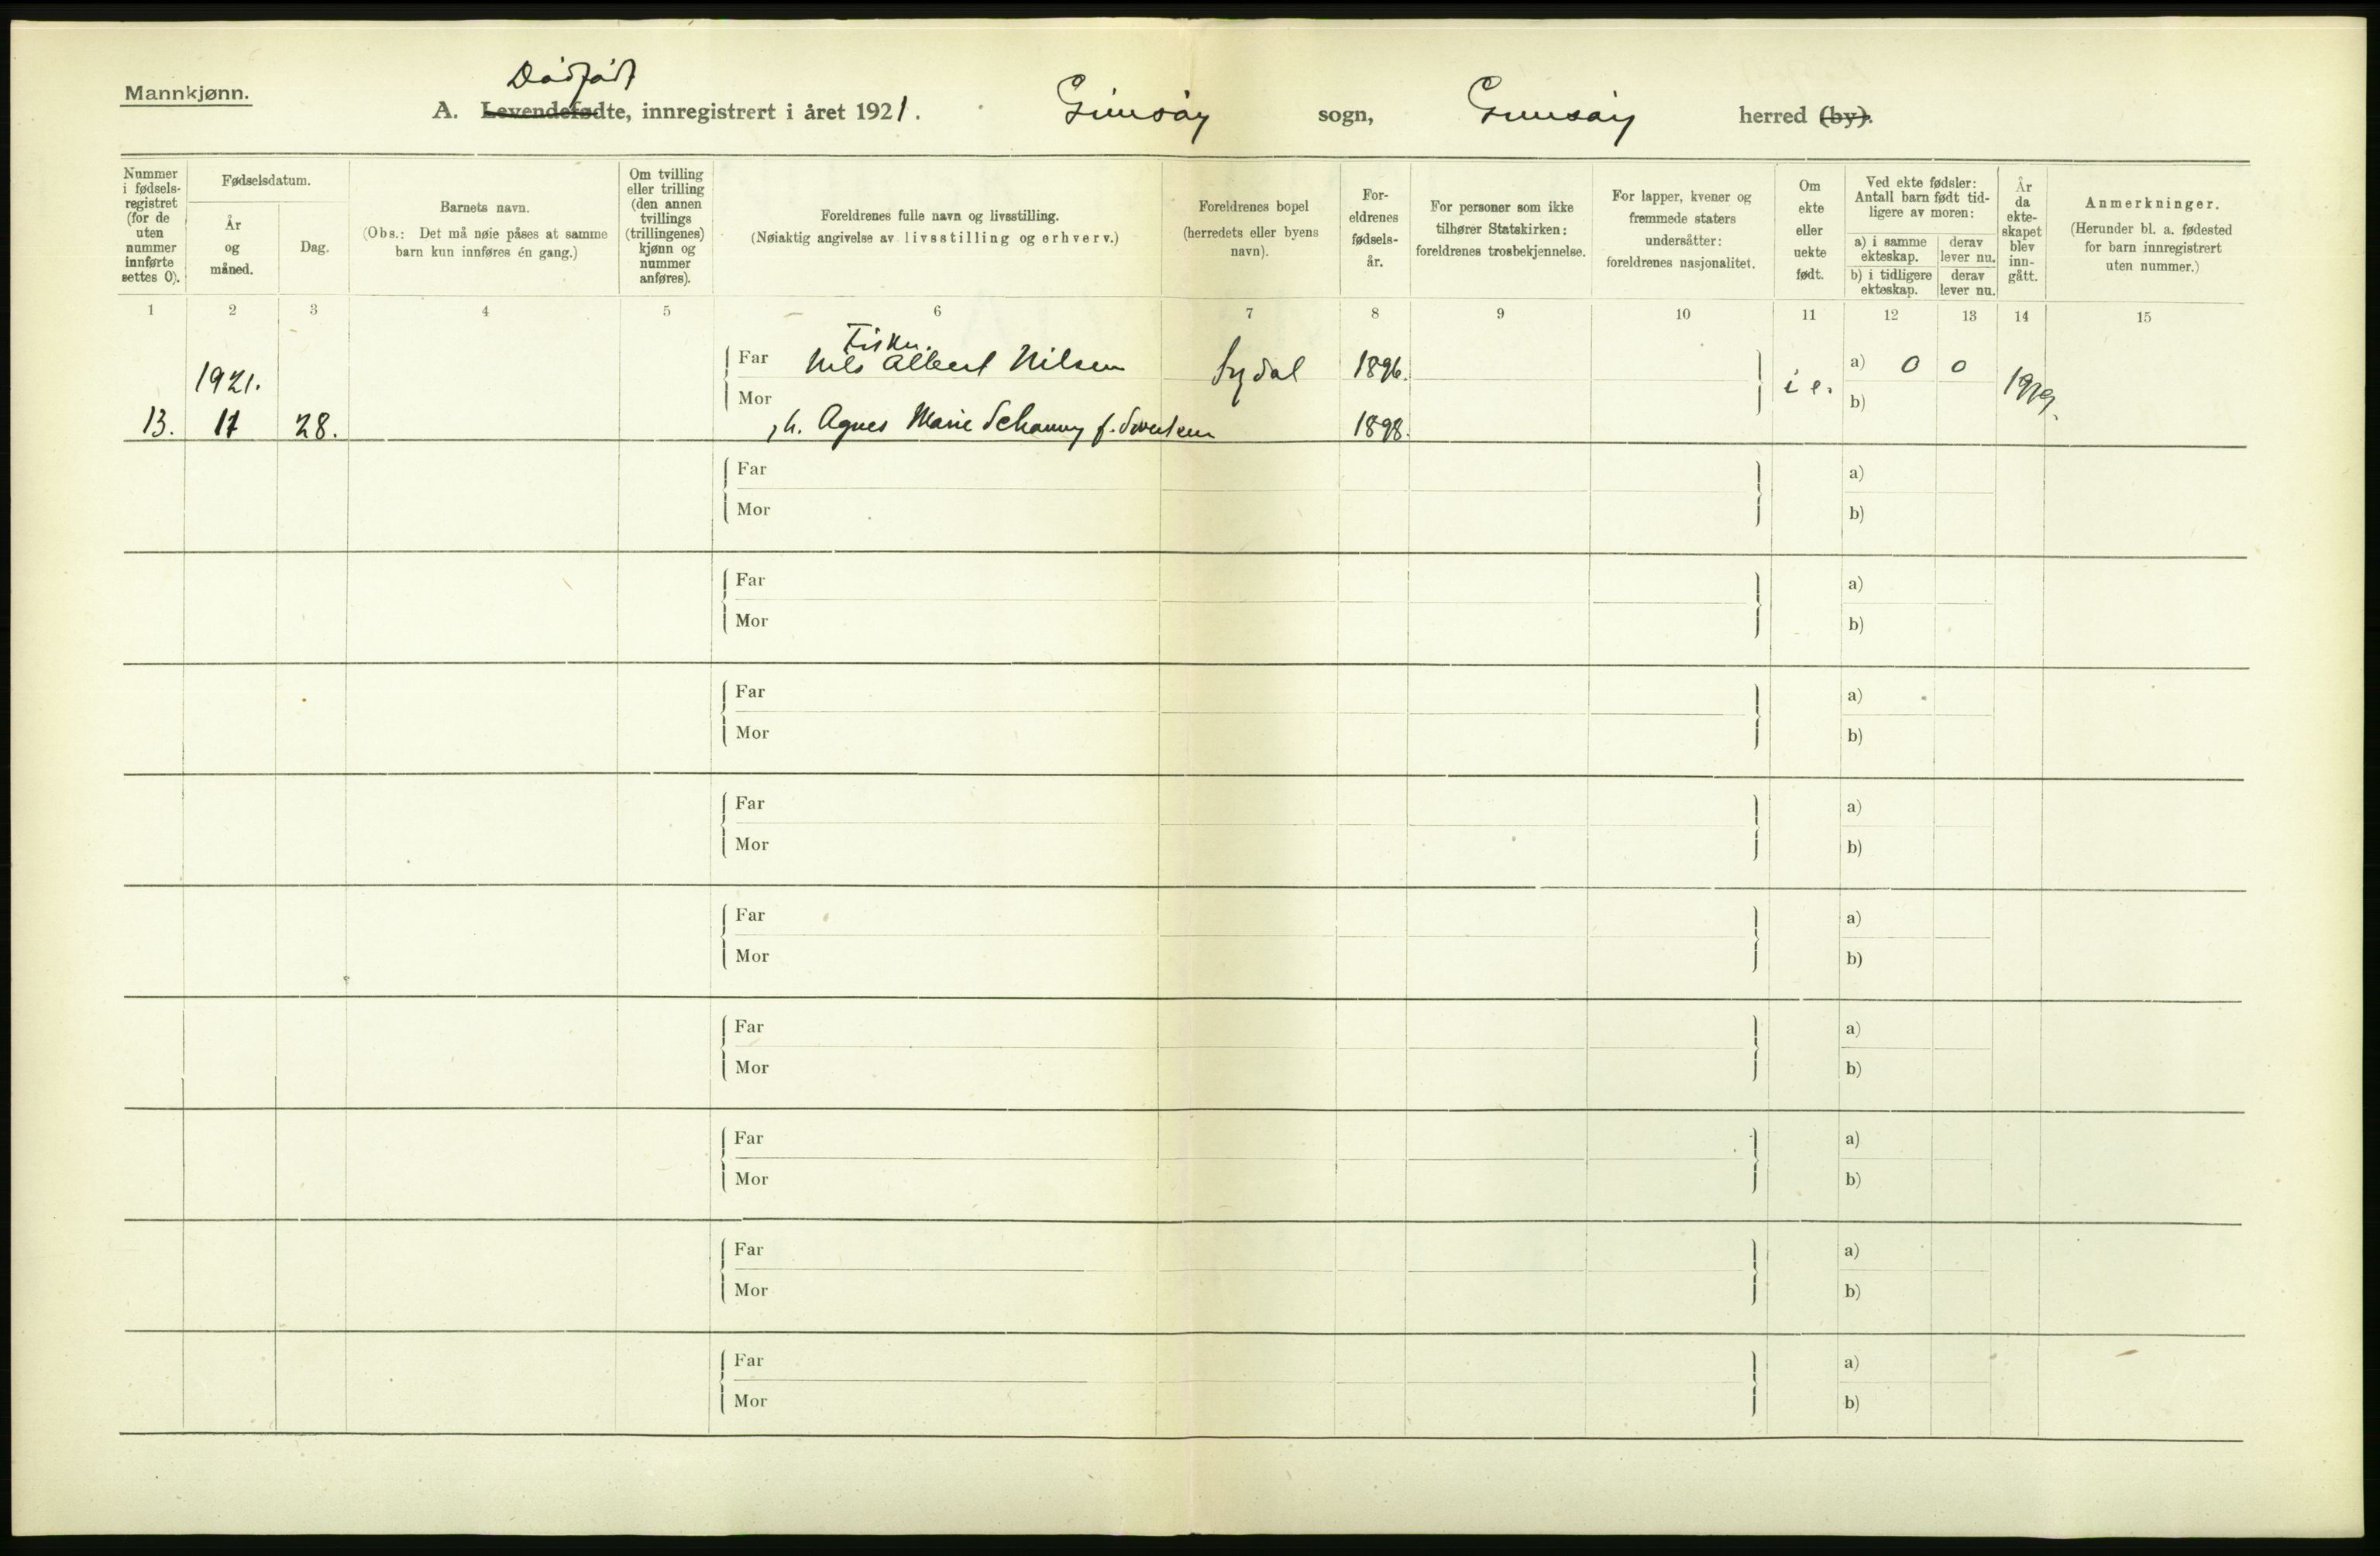 Mannkjønn.
Dødfødt
A. Levendefødte, innregistrert i året 1921. Gimsøy sogn, Gimsøy herred (by).
Nummer i fødsels-registret (for de uten nummer innførte settes 0).
Fødselsdatum.
År og måned.
Dag.
Barnets navn.
(Obs.: Det må nøie påses at samme barn kun innføres én gang.)
Om tvilling eller trilling (den annen tvillings (trillingenes) kjønn og nummer anføres).
Foreldrenes fulle navn og livsstilling.
(Nøiaktig angivelse av livsstilling og erhverv.)
Foreldrenes bopel (herredets eller byens navn).
For-eldrenes fødsels-år.
For personer som ikke tilhører Statskirken: foreldrenes trosbekjennelse.
For lapper, kvener og fremmede staters undersåtter: foreldrenes nasjonalitet.
Om ekte eller uekte født.
Ved ekte fødsler: Antall barn født tid-ligere av moren:
a) i samme ekteskap.
derav lever nu.
b) i tidligere ekteskap.
derav lever nu.
År da ekte-skapet blev inn-gått.
Anmerkninger.
(Herunder bl. a. fødested for barn innregistrert uten nummer.)
1 2 3 4 5 6 7 8 9 10 11 12 13 14 15
Fisker.
1921. Far Nils Albert Nilsen Sydal 1896. i e. a) 0 0 1919.
13. 11 28. Mor h. Agnes Marie f. 1898. b)
Far a)
Mor b)
Far a)
Mor b)
Far a)
Mor b)
Far a)
Mor b)
Far a)
Mor b)
Far a)
Mor b)
Far a)
Mor b)
Far a)
Mor b)
Far a)
Mor b)